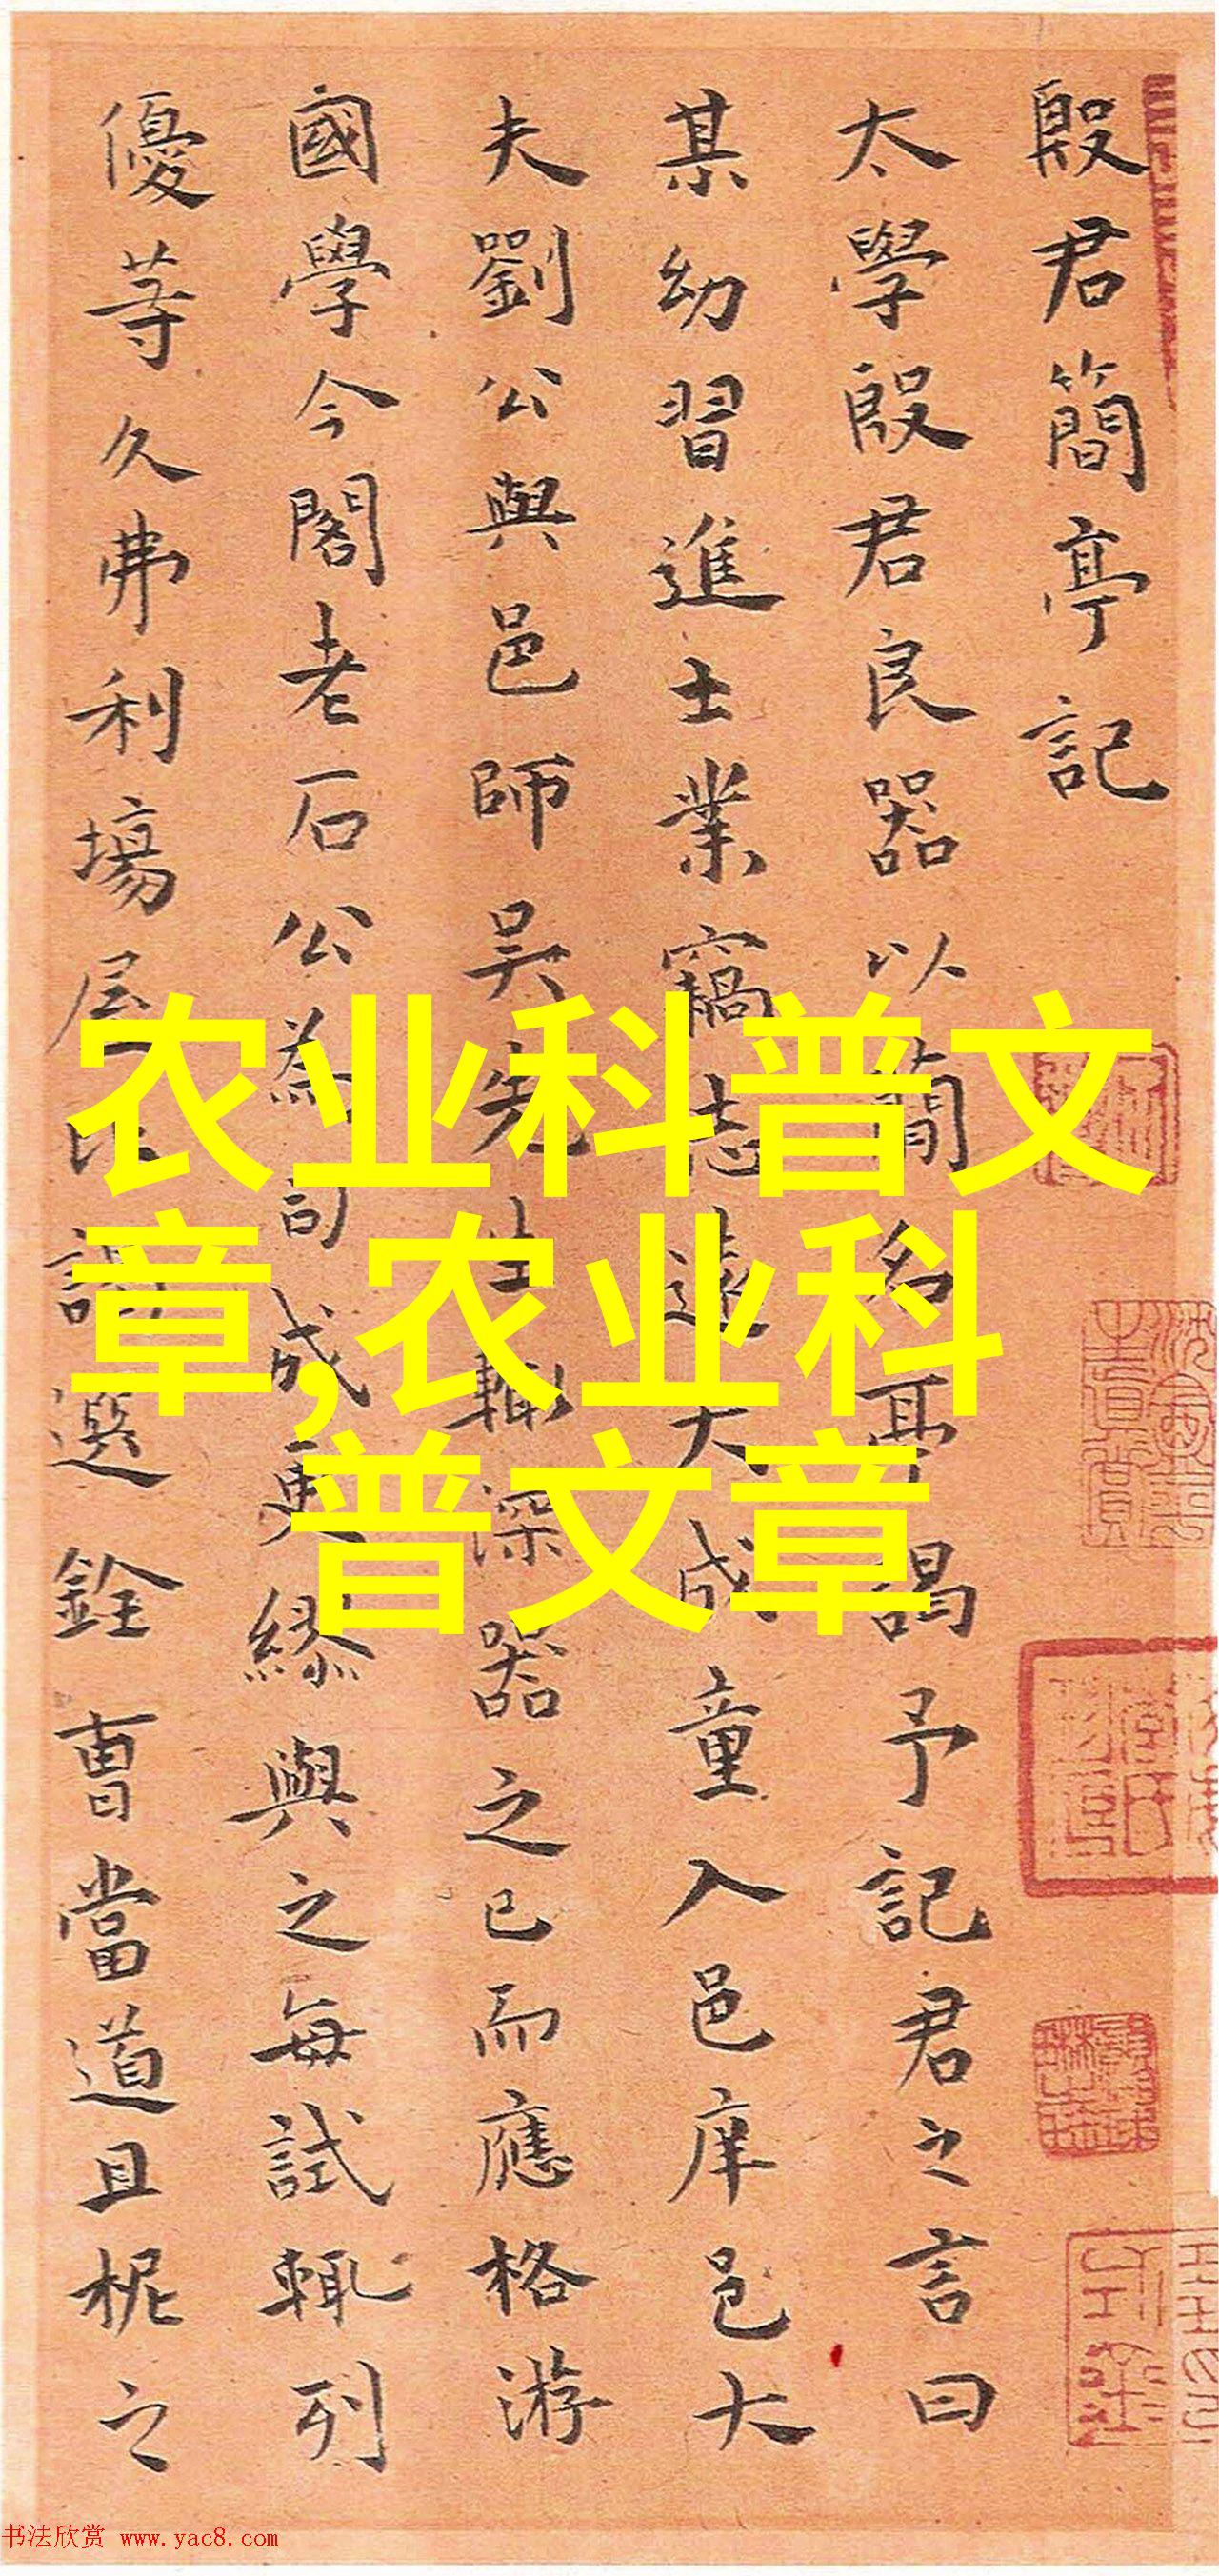 殷君簡亭記
太學殷君良器以簡名亭謁予記君之言曰
某幼習進士業竊志遠大成童入邑庠邑大
夫劉公與邑師吳先生輙深器之已而應格游
國學今閣老石公為司成更繆與之每試輙列
優等久弗利場屋比謁選銓曹當道且柅之
农业科普文
章,农业科
普文章
书法欣赏 www.yac8.com